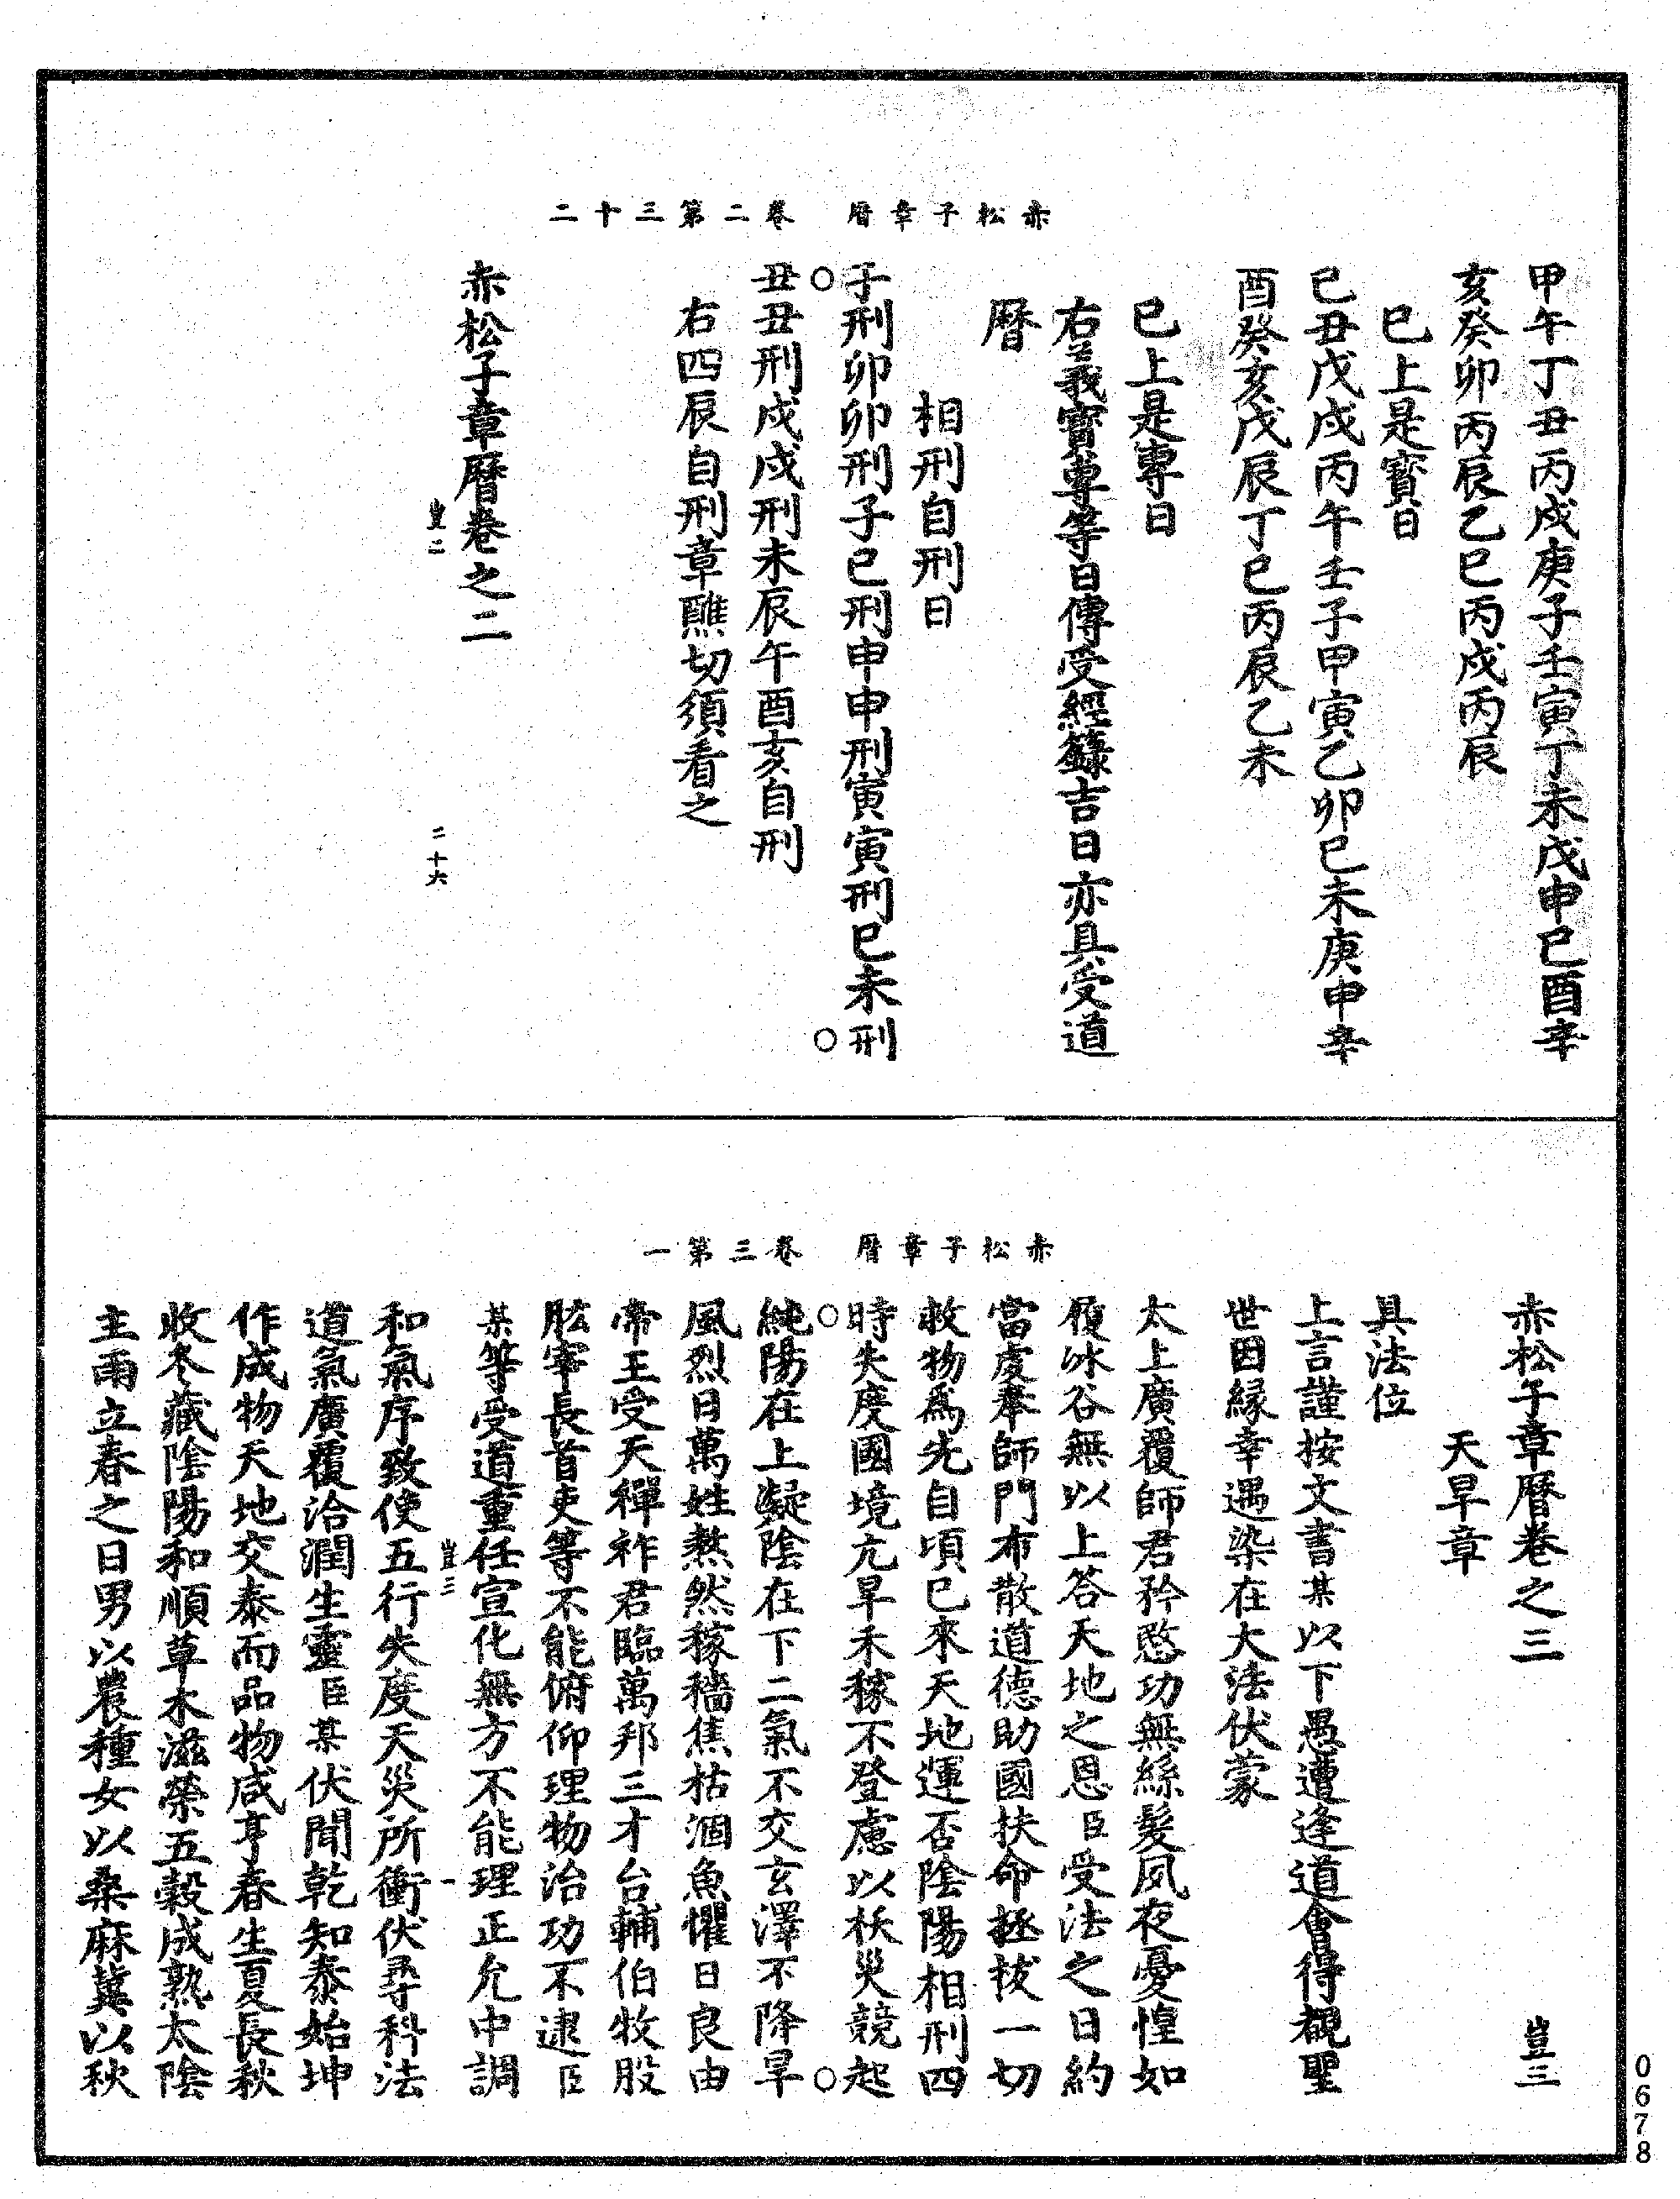 赤松子章曆　卷二第三十二
甲午丁丑丙戌庚子壬寅丁未戊申已酉辛
亥癸卯丙辰乙巳丙戌丙辰
已上是寳日
已丑戊戌丙午壬子甲寅乙卯已未庚申辛
酉癸亥戊辰丁巳丙辰乙未
已上是專日
右義寳專等日傳受經籙吉日亦具受道
曆
相刑自刑日
子刑卯卯刑子巳刑申申刑寅寅刑巳未刑
丑丑刑戌戌刑未辰午酉亥自刑
右四辰自刑章醮切須看之
豈二　二十六
赤松子章曆卷之二
赤松子章曆　卷三第一
赤松子章曆卷之三　豈三
天旱章
具法位
上言謹按文書某以下愚遭逢道會得覩聖
世因緣幸遇染在大法伏蒙
太上廣覆師君矜愍功無絲髮夙夜憂惶如
履冰谷無以上答天地之恩臣受法之日約
當虔奉師門布散道德助國扶命拯拔一切
救物爲先自頃已來天地運否陰陽相刑四
時失度國境亢旱禾稼不登慮以祅災競起
純陽在上凝陰在下二氣不交玄澤不降旱
風烈日萬姓熬然稼穡焦枯涸魚懼日良由
帝王受天禪祚君臨萬邦三才台輔伯牧股
肱宰長首吏等不能俯仰理物治功不逮臣
某等受道重任宣化無方不能理正允中調
豈三　一
和氣序致使五行失度天災所衝伏尋科法
道氣廣覆洽潤生靈臣某伏聞乾知泰始坤
作成物天地交泰而品物咸亨春生夏長秋
收冬藏陰陽和順草木滋榮五穀成熟太陰
主雨立春之日男以農種女以桑麻冀以秋
0678